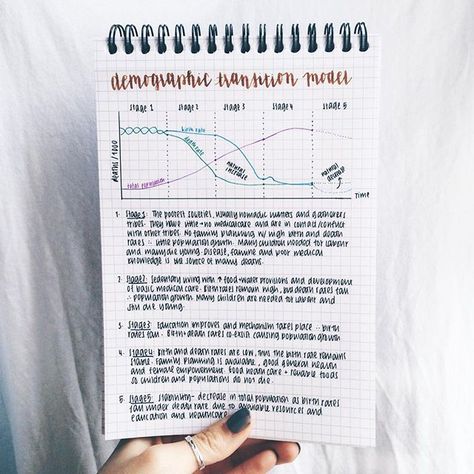 demographic transition model
stage 1 stage 2 stage 3 stage 4 stage 5
deaths/1000
birth rate
death rate
natural increase
natural decrease
total population
Time
1. Stage 1: The poorest countries, usually nomadic hunters and gatherers
tribes. They have little-no medical care and are in contact/conflict
with other tribes. No family planning w/ high birth and death
rates ∴ little population growth. Many children needed for labour
and many die young. Disease, famine and poor medical
knowledge is the source of many deaths.
2. Stage 2: Sedentary living with ↑ food+water provisions and development
of basic medical care. Birth rates remain high, but death rates fall
∴ population growth. Many children are needed for labour and
still die young.
3. Stage 3: Education improves and mechanism takes place ∴ birth
rates fall. Birth+death rates co-exist causing population growth
4. Stage 4: Birth and death rates are low, thus the birth rate remains
stable. Family planning is available, good general health
and female empowerment. Good healthcare + reliable foods
so children and populations do not die.
5. Stage 5: Stability- decrease in total population as birth rates
fall under death rate due to available resources and
education and healthcare